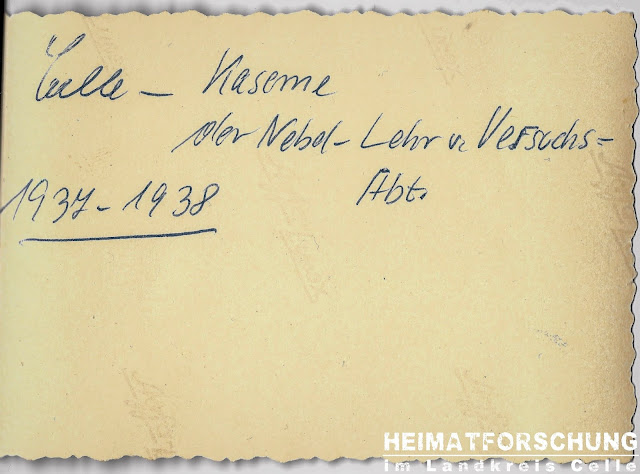 Celle – Kaserne
der Nebel- Lehr u. Versuchs=
Abt.
1937 - 1938
HEIMATFORSCHUNG
im Landkreis Celle